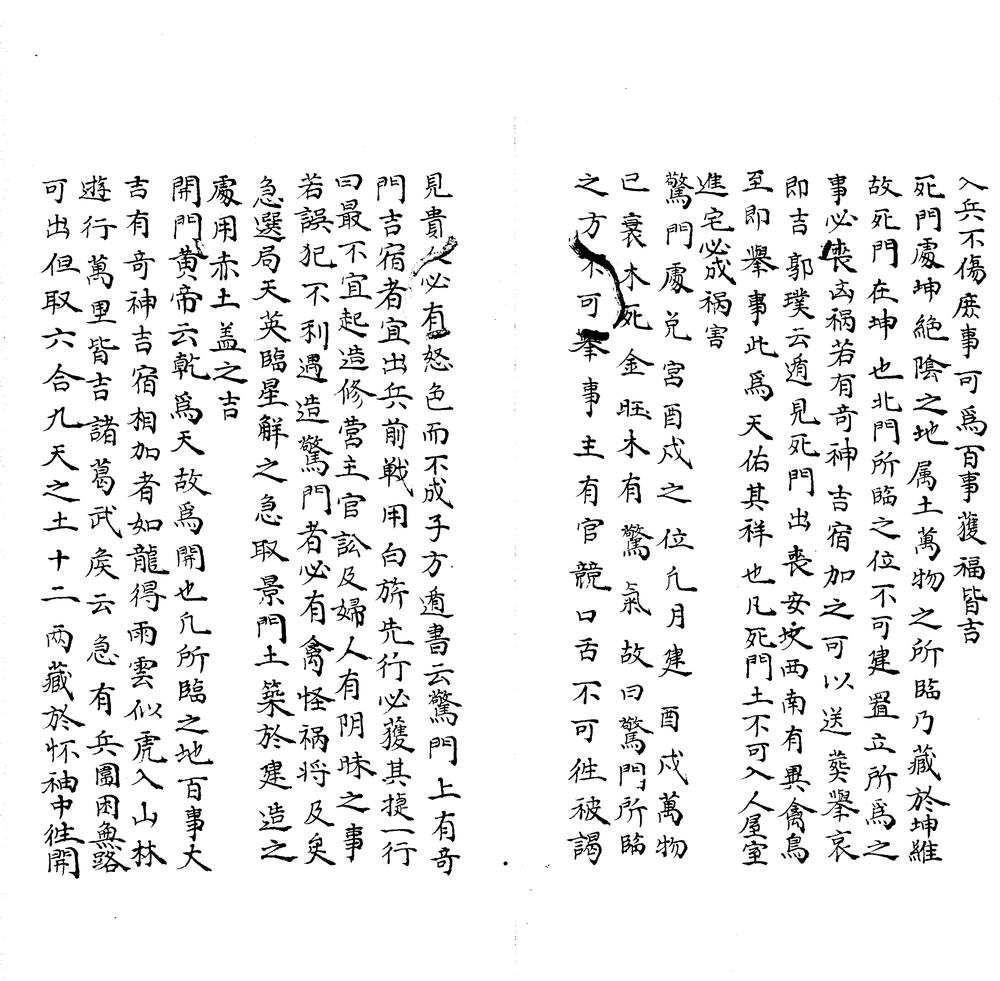 入兵不傷庶事可爲百事獲福皆吉
死門處坤絶陰之地属土萬物之所臨乃藏於坤維
故死門在坤也北門所臨之位不可建置立所爲之
事必喪凶禍若有竒神吉宿加之可以送葬舉哀
即吉郭璞云遁見死門出喪安坟西南有異禽鳥
至即舉事此爲天佑其祥也凡死門土不可入人屋室
進宅必成禍害
驚門處兑宮酉戍之位凡月建酉戍萬物
已衰木死金旺木有驚氣故曰驚門所臨
之方不可舉事主有官競口舌不可徃被謁
見貴人必有怒色而不成子方遁書云驚門上有竒
門吉宿者宜出兵前戦用白旂先行必獲其㨗一行
曰最不宜起造修营主官訟及婦人有阴昧之事
若誤犯不利遇造驚門者必有禽怪禍将及矣
急選局天英臨星解之急取景門土築於建造之
處用赤土盖之吉
開門黄帝云乾爲天故爲開也凡所臨之地百事大
吉有竒神吉宿相加者如龍得雨雲似虎入山林
遊行萬里皆吉諸葛武矦云急有兵圍困無路
可出但取六合九天之土十二两藏於怀袖中徃開